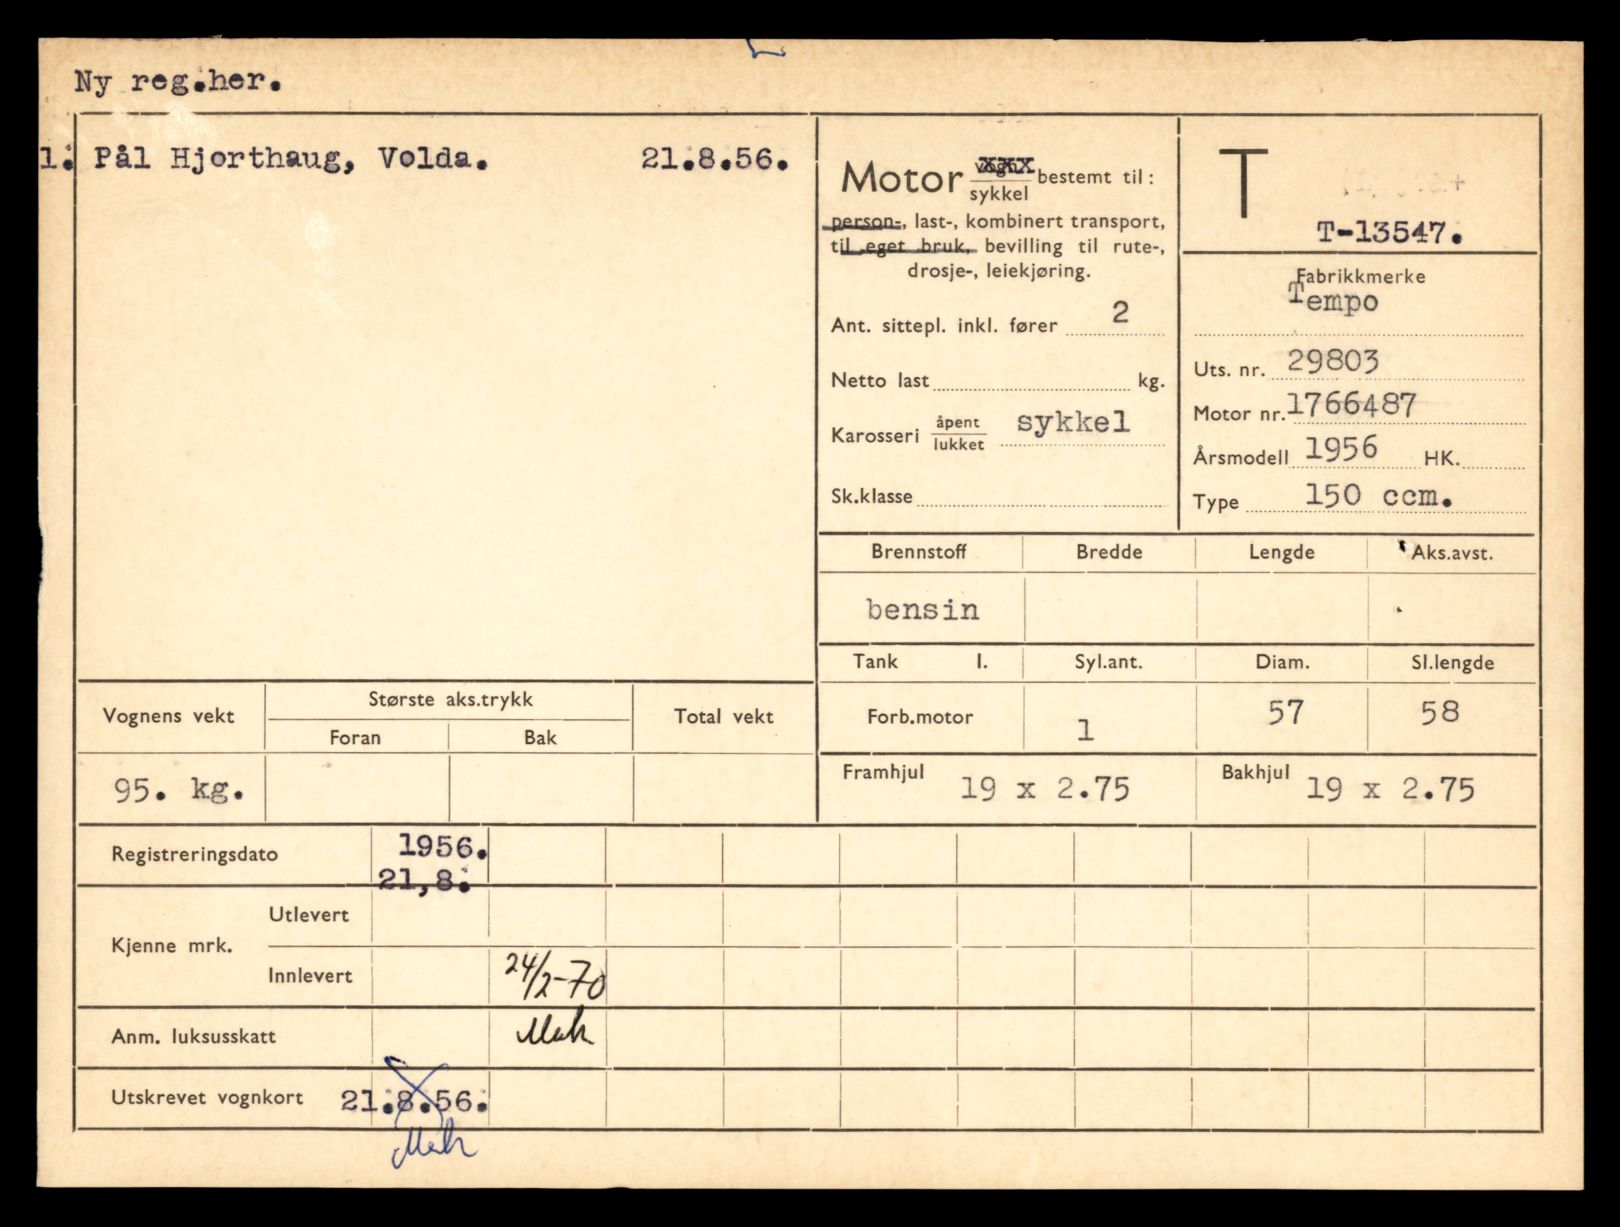 Ny reg.her.
1. Pål Hjorthaug, Volda. 21.8.56.
Motor vogn xxx
sykkel bestemt til:
person-, last-, kombinert transport,
til eget bruk, bevilling til rute-,
drosje-, leiekjøring.
Ant. sittepl. inkl. fører 2
Netto last kg.
Karosseri åpent
lukket sykkel
Sk.klasse
T
T-13547.
Fabrikkmerke
Tempo
Uts. nr. 29803
Motor nr. 1766487
Årsmodell 1956 HK.
Type 150 ccm.
Brennstoff Bredde Lengde Aks.avst.
bensin
Tank l. Syl.ant. Diam. Sl.lengde
Forb.motor 1 57 58
Framhjul 19 x 2.75 Bakhjul 19 x 2.75
Vognens vekt Største aks.trykk Total vekt
Foran Bak
95. kg.
Registreringsdato 1956.
21,8.
Kjenne mrk. Utlevert
Innlevert 24/2-70
Anm. luksusskatt
Utskrevet vognkort 21.8.56.